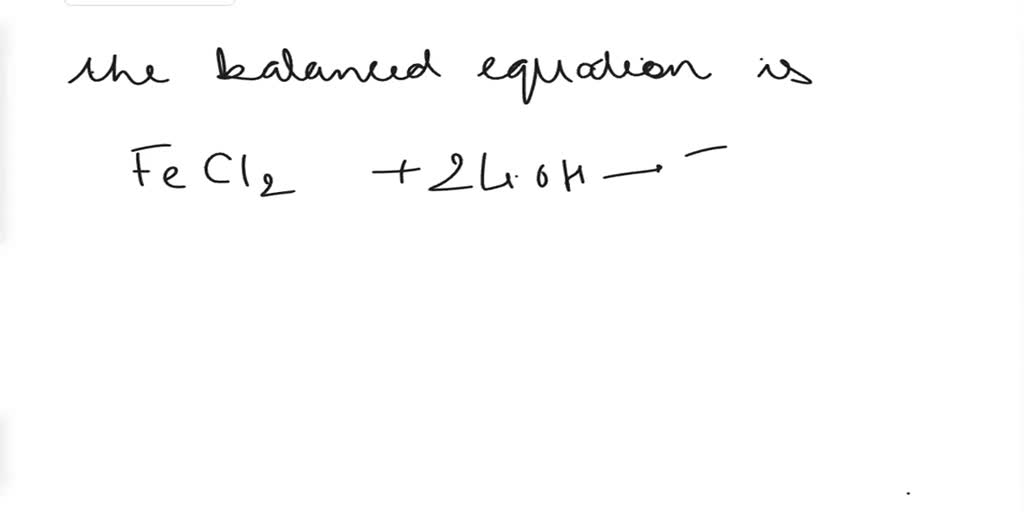 the balanced equation is
FeCl2 + 2LiOH →